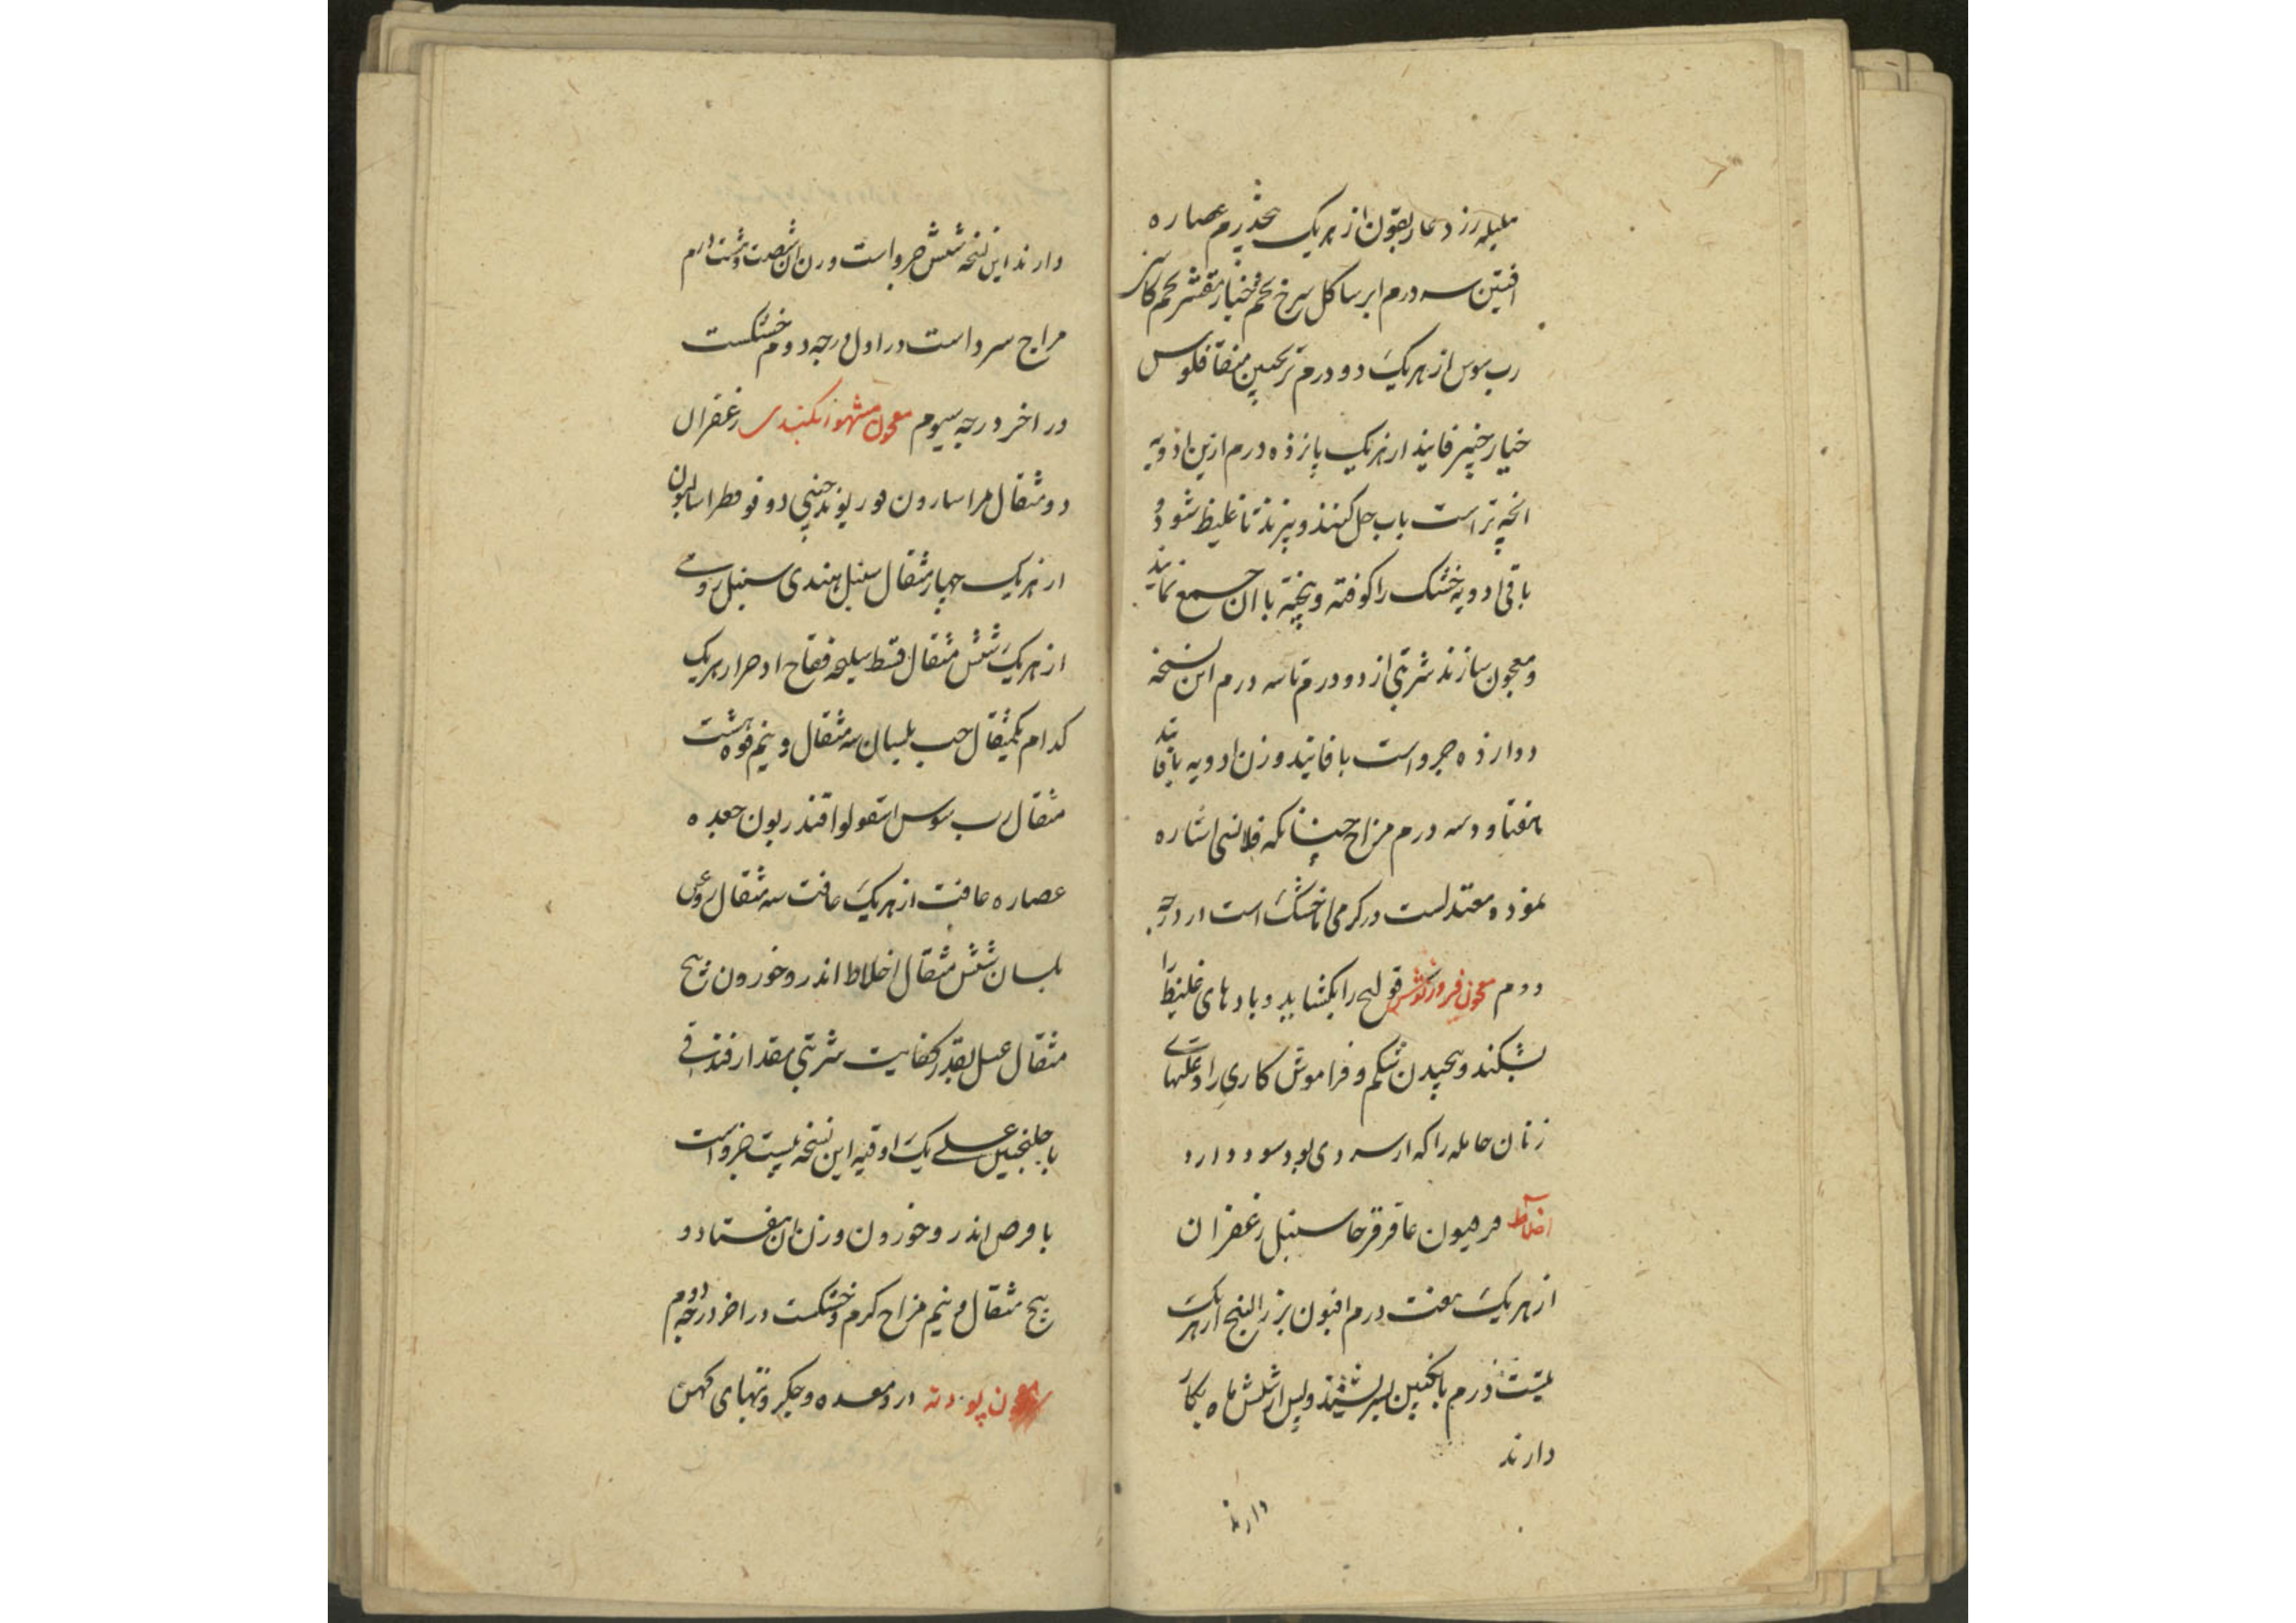 هلیله زرد غاریقون از هریک پنجدرم عصاره
افتین سه درم ایرسا کل سرخ تخم خیار مقشر تخم کاسنی
رب سوس از هریک دو درم ترنجبین منقا فلوس
خیار چنبر فانیذ از هریک پانزده درم ازین ادویه
انچه تر است باب حل کنند و بپزند تا غلیظ شود و
باقی ادویه خشک را کوفته و پخته با ان جمع نمایند
و معجون سازند شربتی از دو درم تا سه درم این نسخه
دوازده جرو است با فانیذ وزن ادویه با فانیذ
هفتاد و سه درم مزاج چنانکه قلانسی اشاره
نموذ و معتدلست در کرمی اما خشک است در درجه
دوم معجون فیروزنوش قولنج را بکشاید و بادهای غلیظ را
بشکند و پیچیدن شکم و فراموش کاری را و علتهای
زنان حامله را که از سردی بود سود دارد
اخلاط فرفیون عاقرقرحا سنبل زعفران
از هریک هفت درم افیون بزرالبنج از هریک
بیست درم بانکبین بسرشند و پس از شش ماه بکار
دارند
دارند
دارند این نسخه شش جرو است وزن ان شصت و هشت درم
مزاج سرد است در اول درجه دوم خشکست
در اخر درجه سیوم معجون مشهور بکندی زعفران
دو مثقال مر اسارون فو ریوند چینی دوقو فطراسالیون
از هریک چهار مثقال سنبل هندی سنبل رومی
از هریک شش مثقال قسط سلیخه فقاح اذخر از هریک
کدام یکمثقال حب بلسان سه مثقال و نیم فوه هشت
مثقال رب سوس اسقولوقندریون جعده
عصاره غافت از هریک غافت سه مثقال روغن
بلسان شش مثقال اخلاط اندروخورون پنج
مثقال عسل بقدر کفایت شربتی مقدار فندقی
با جلنجبین عسلی یک اوقیه این نسخه بیست جزو است
با قرص اندروخورون وزن ان هفتاد و
پنج مثقال و نیم مزاج کرم و خشکست در اخر درجه دوم
معجون پودنه درد معده و جکر و تبهای کهن